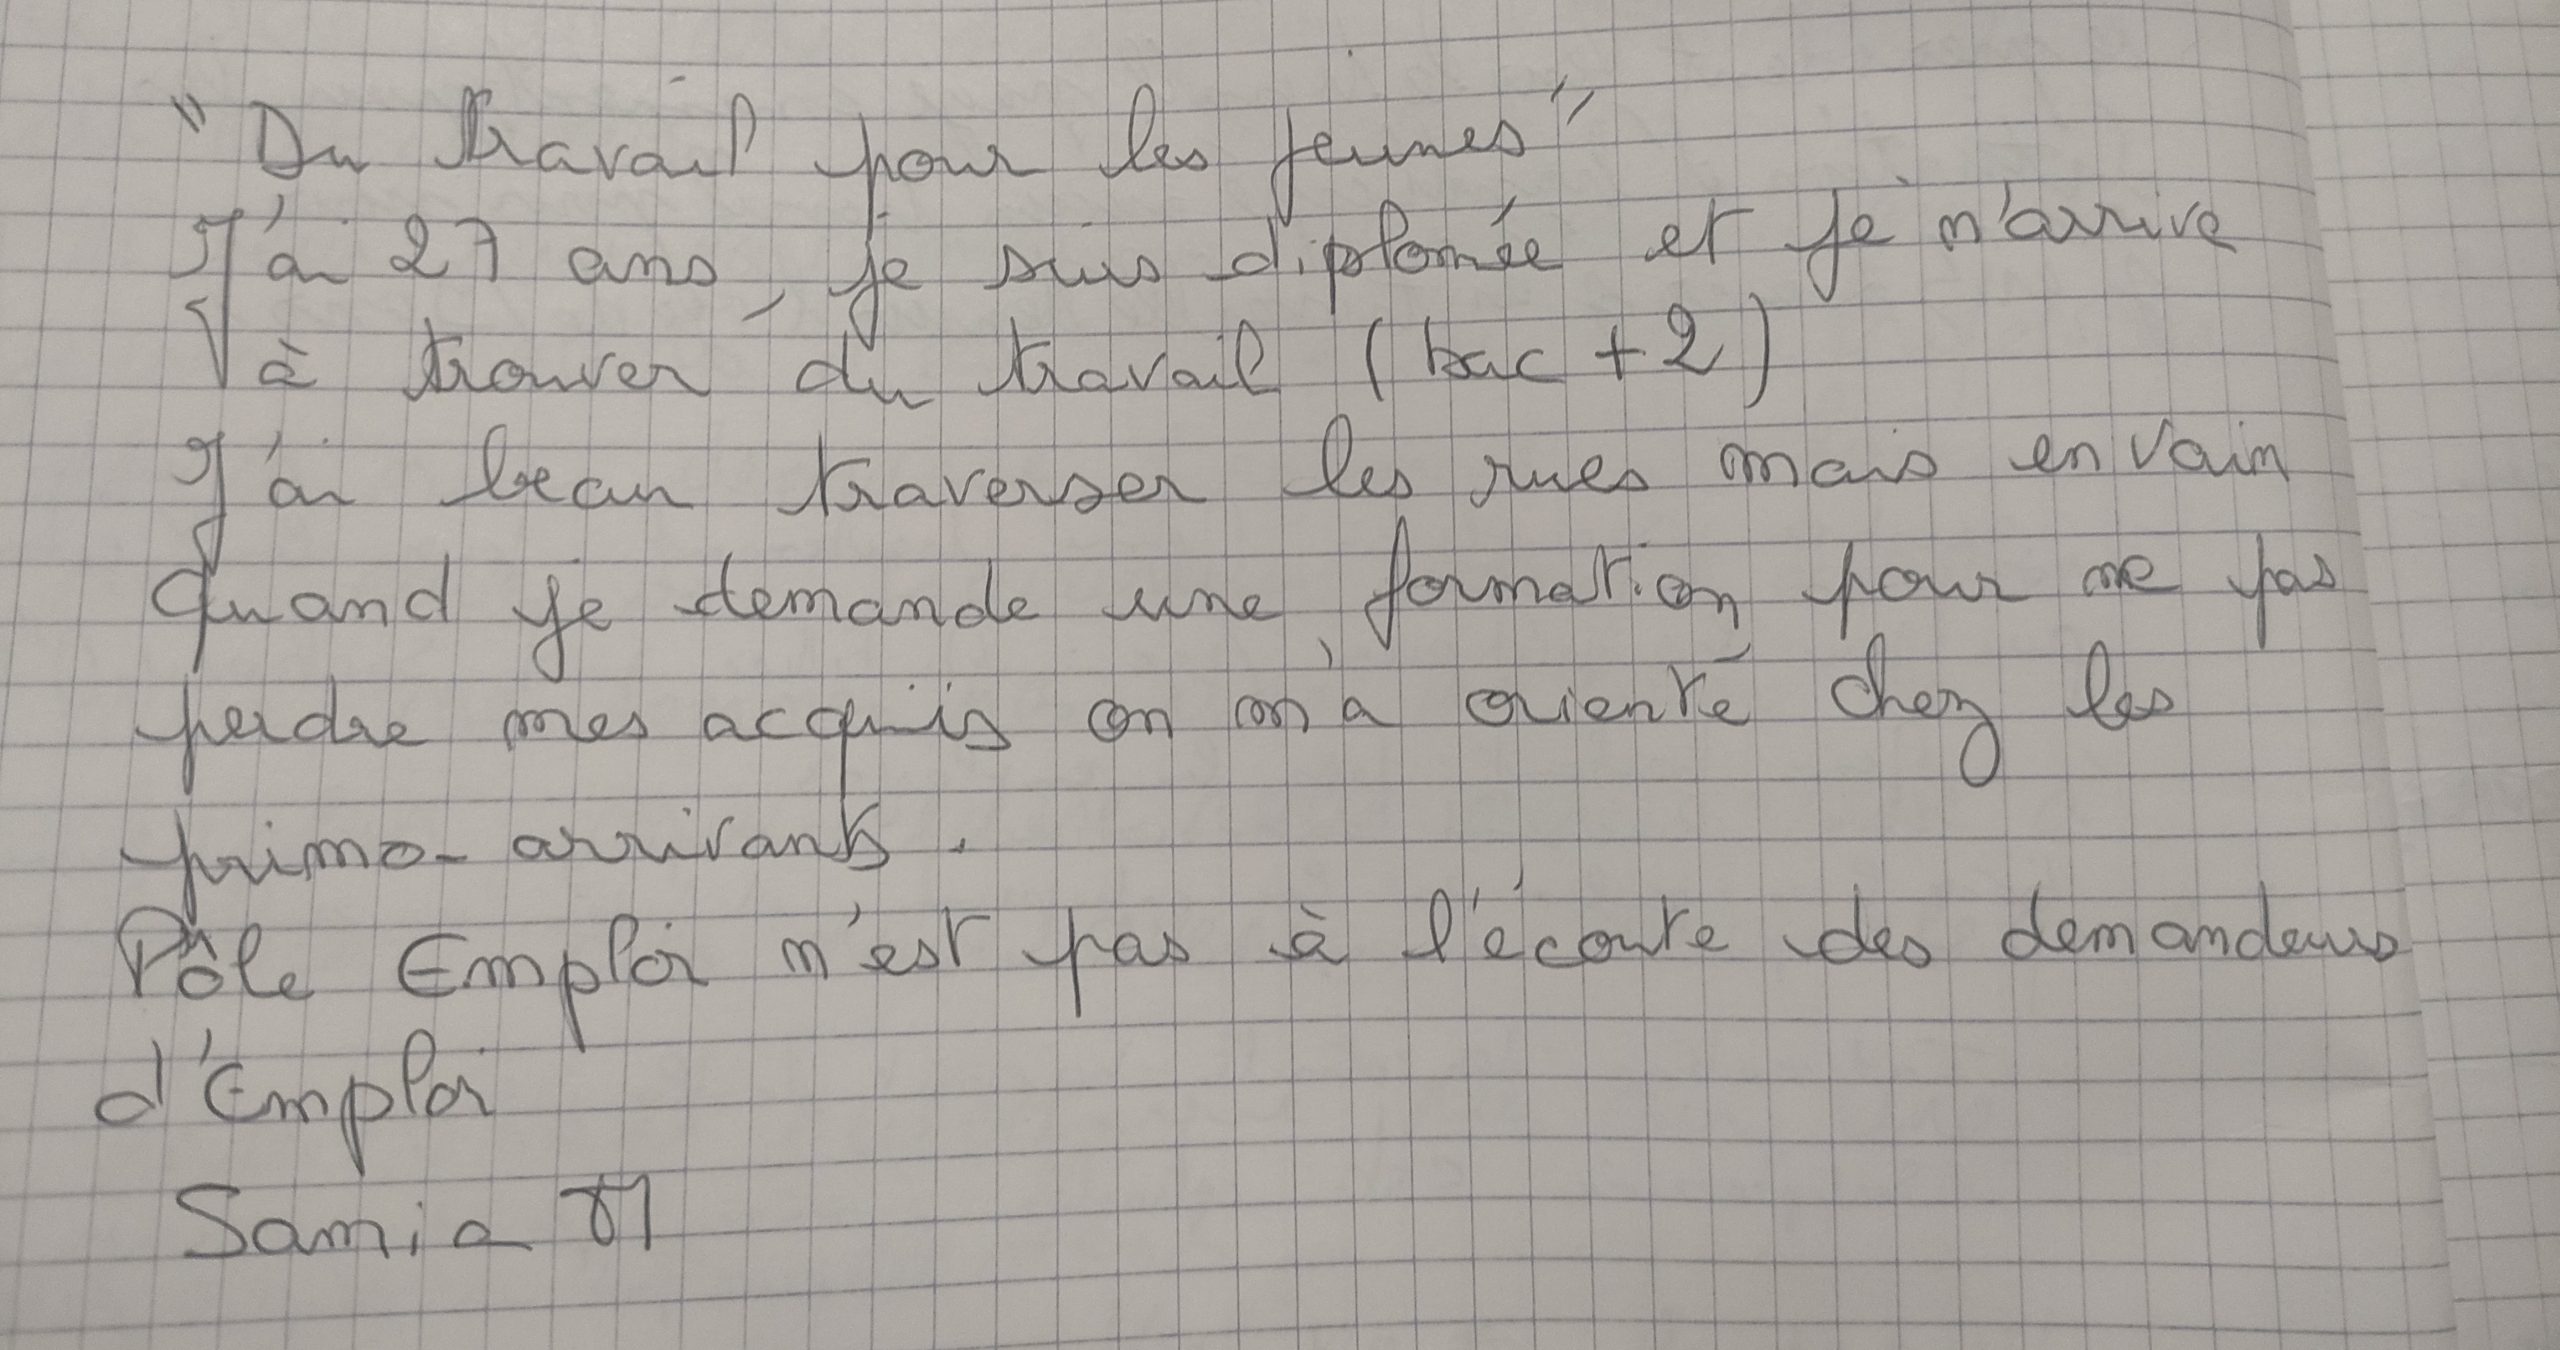 "Du travail pour les jeunes"
J'ai 27 ans, je suis diplomée et je n'arrive
à trouver du travail (bac + 2)
J'ai beau traverser les rues mais en vain
Quand je demande une formation pour ne pas
perdre mes acquis on m'a orienté chez les
primo-arrivants.
Pôle Emploi n'est pas à l'écoute des demandeurs
d'Emploi
Samia